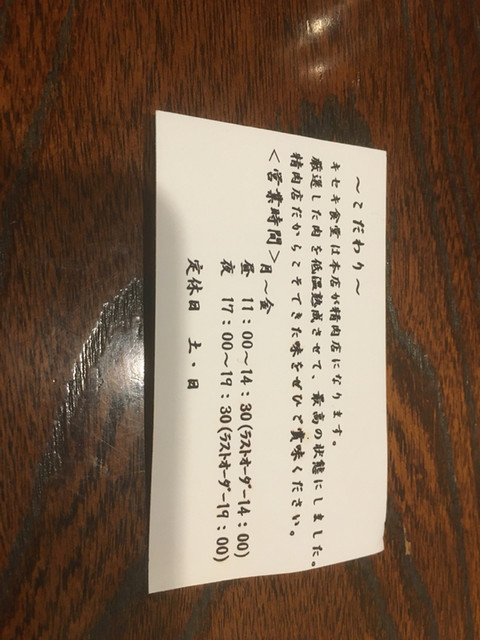 〜こだわり〜
キセキ食堂は本店が精肉店になります。
厳選した肉を低温熟成させて、最高の状態にしました。
精肉店だからこそできた味をぜひご賞味ください。
<営業時間>月〜金
昼 11:00〜14:30(ラストオーダー14:00)
夜 17:00〜19:30(ラストオーダー19:00)
定休日 土・日